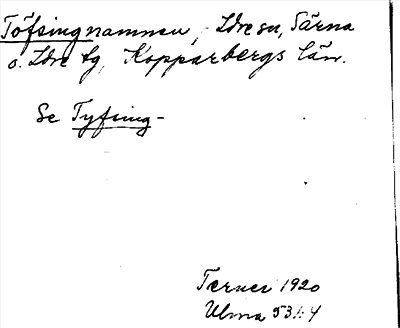 Töfsingnamnen, Idre sn, Särna
o. Idre tg, Kopparbergs län.
Se Tyfsing-
Terner 1920
Ulma 531:4